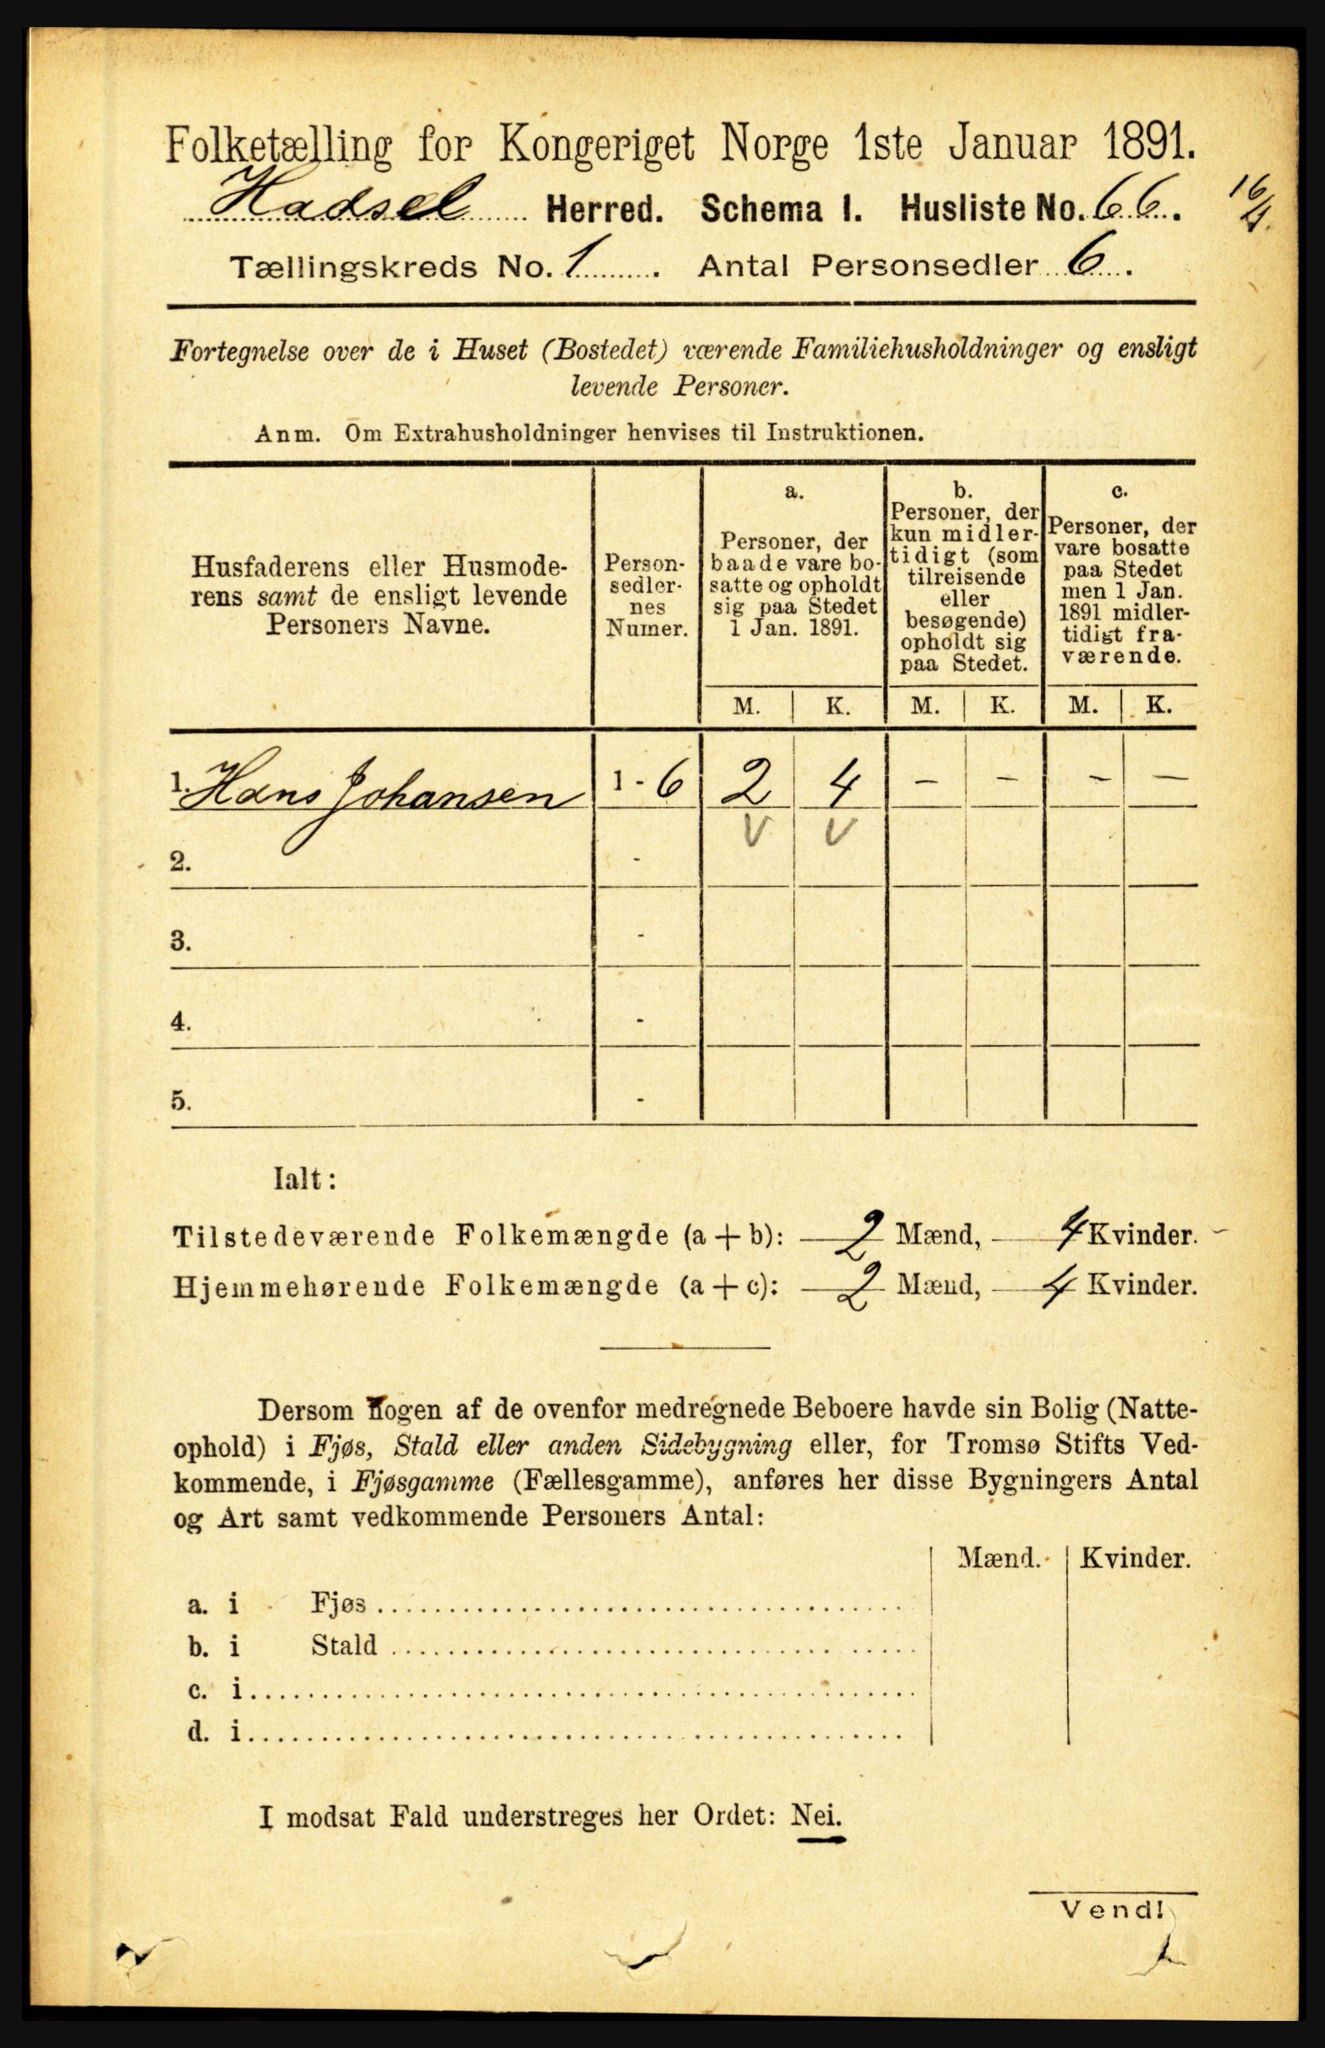 Folketælling for Kongeriget Norge 1ste Januar 1891.
Hadsel Herred. Schema I. Husliste No. 66.
16/4.
Tællingskreds No. 1. Antal Personsedler 6.
Fortegnelse over de i Huset (Bostedet) værende Familiehusholdninger og ensligt
levende Personer.
Anm. Om Extrahusholdninger henvises til Instruktionen.
Husfaderens eller Husmode-
rens samt de ensligt levende
Personers Navne.
Person-
sedler-
nes
Numer.
a.
Personer, der
baade vare bo-
satte og opholdt
sig paa Stedet
1 Jan. 1891.
b.
Personer, der
kun midler-
tidigt (som
tilreisende
eller
besøgende)
opholdt sig
paa Stedet.
c.
Personer, der
vare bosatte
paa Stedet
men 1 Jan.
1891 midler-
tidigt fra-
værende.
M. K. M. K. M. K.
1. Hans Johansen 1 - 6 2 4 - - - -
V V
2. -
3. -
4. -
5. -
Ialt:
Tilstedeværende Folkemængde (a + b): 2 Mænd, 4 Kvinder.
Hjemmehørende Folkemængde (a + c): 2 Mænd, 4 Kvinder.
Dersom nogen af de ovenfor medregnede Beboere havde sin Bolig (Natte-
ophold) i Fjøs, Stald eller anden Sidebygning eller, for Tromsø Stifts Ved-
kommende, i Fjøsgamme (Fællesgamme), anføres her disse Bygningers Antal
og Art samt vedkommende Personers Antal:
Mænd. Kvinder.
a. i Fjøs
b. i Stald
c. i
d. i
I modsat Fald understreges her Ordet: Nei.
Vend!